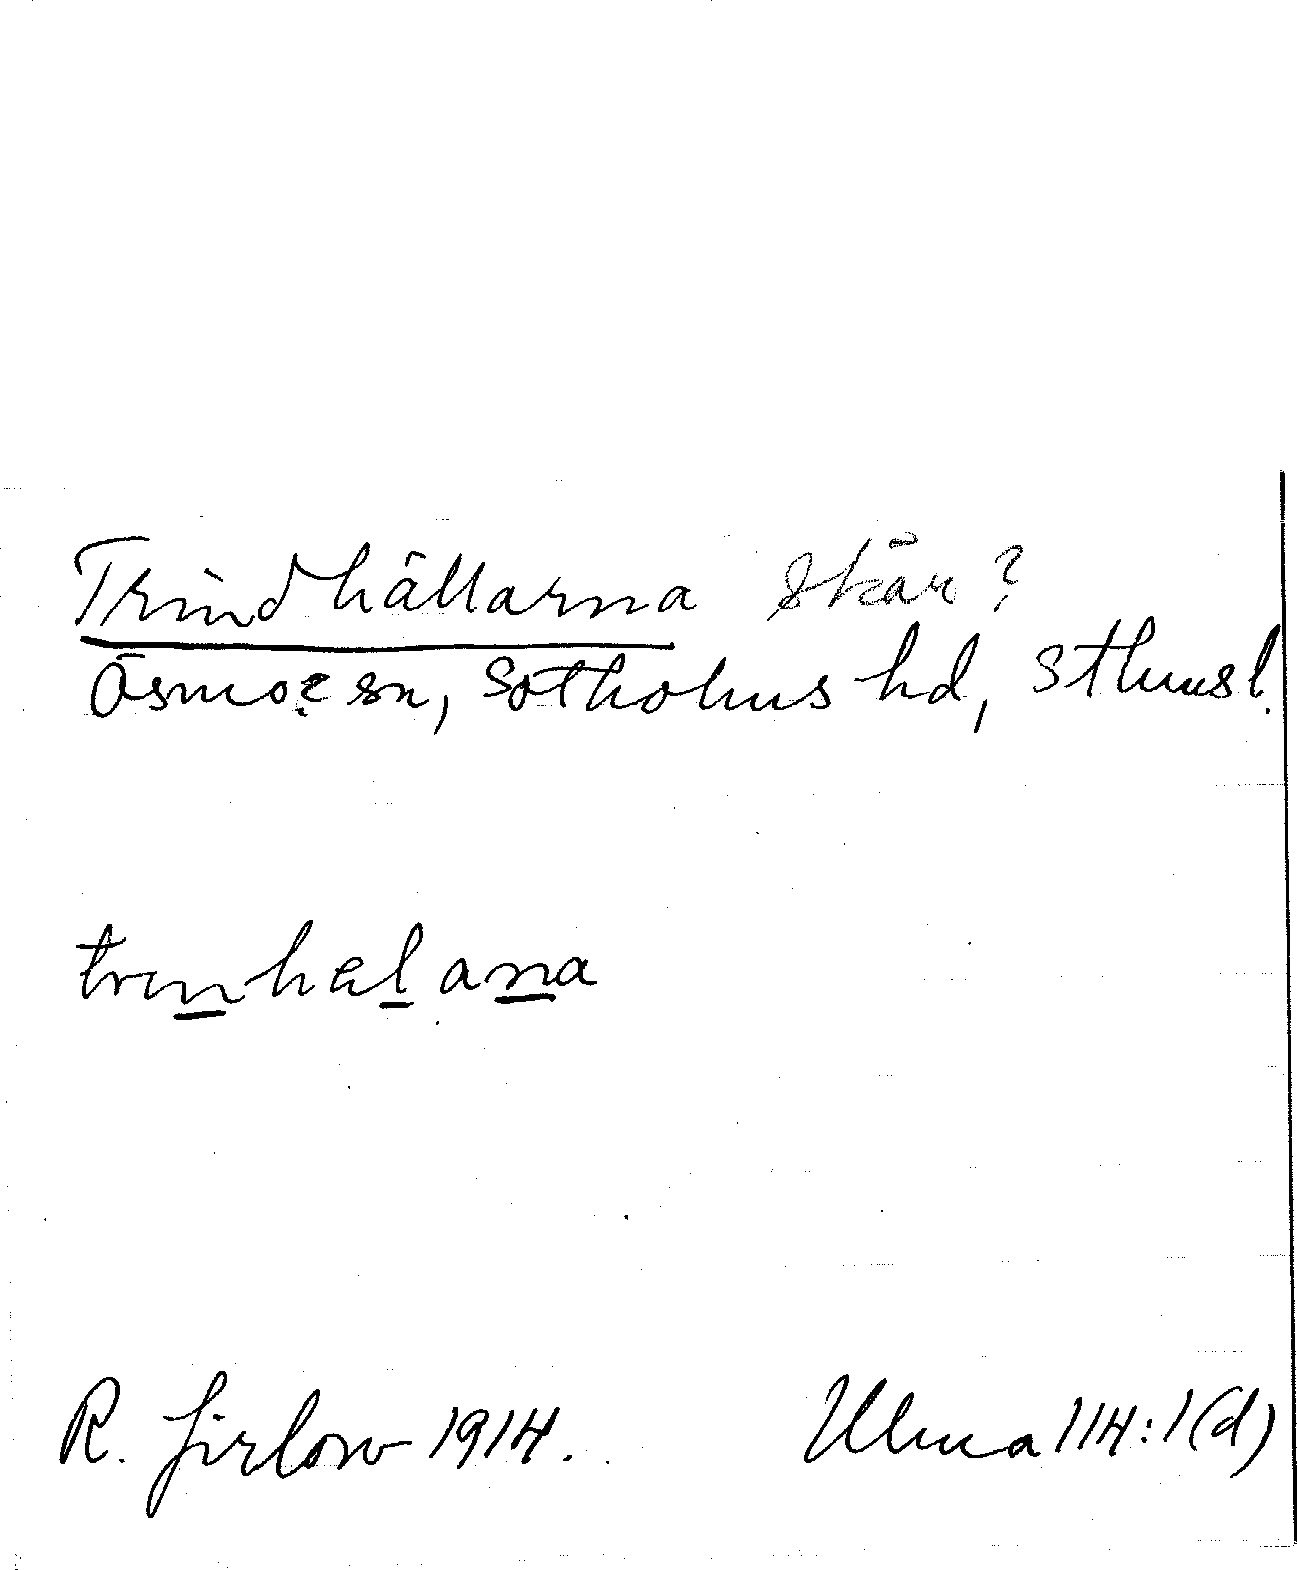 Trindhällarna skär?
Ösmo sn, Sotholms hd, Sthmsl.
trinhälana
R. Jirlow 1914.
Ulma 114:1(d)